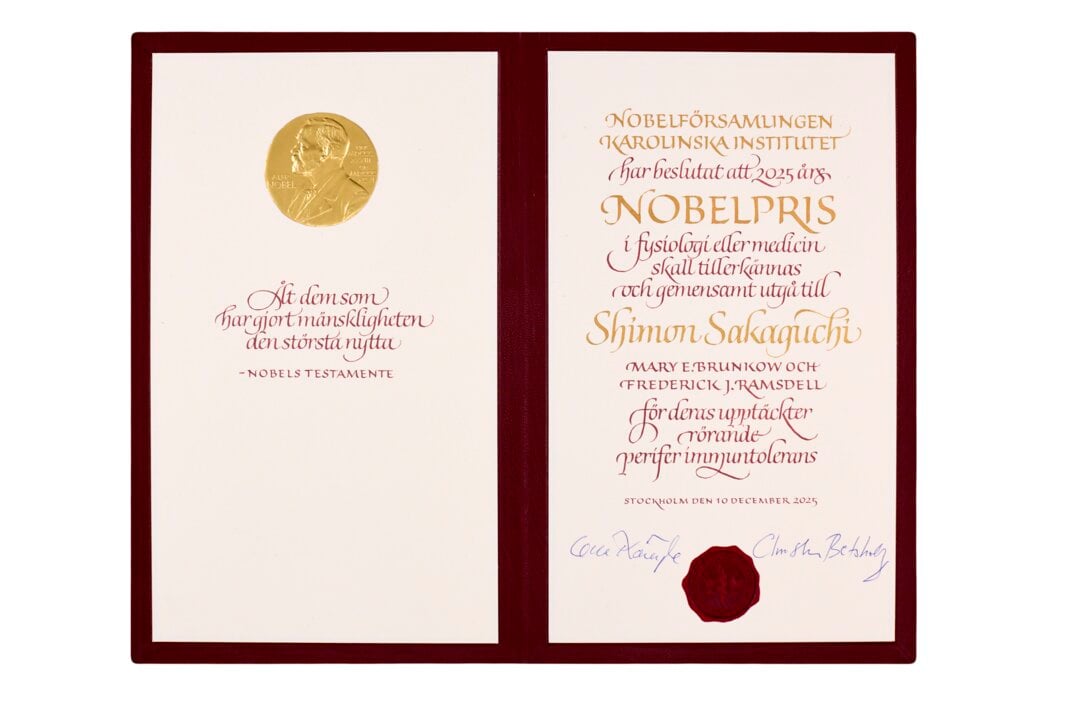 ALFR·
NOBEL
Åt dem som
har gjort mänskligheten
den största nytta
-NOBELS TESTAMENTE
NOBELFÖRSAMLINGEN
KAROLINSKA INSTITUTET
har beslutat att 2025 års
NOBELPRIS
i fysiologi eller medicin
skall tillerkännas
och gemensamt utgå till
Shimon Sakaguchi
MARY E. BRUNKOW OCH
FREDERICK J. RAMSDELL
för deras upptäckter
rörande
perifer immuntolerans
STOCKHOLM DEN 10 DECEMBER 2025